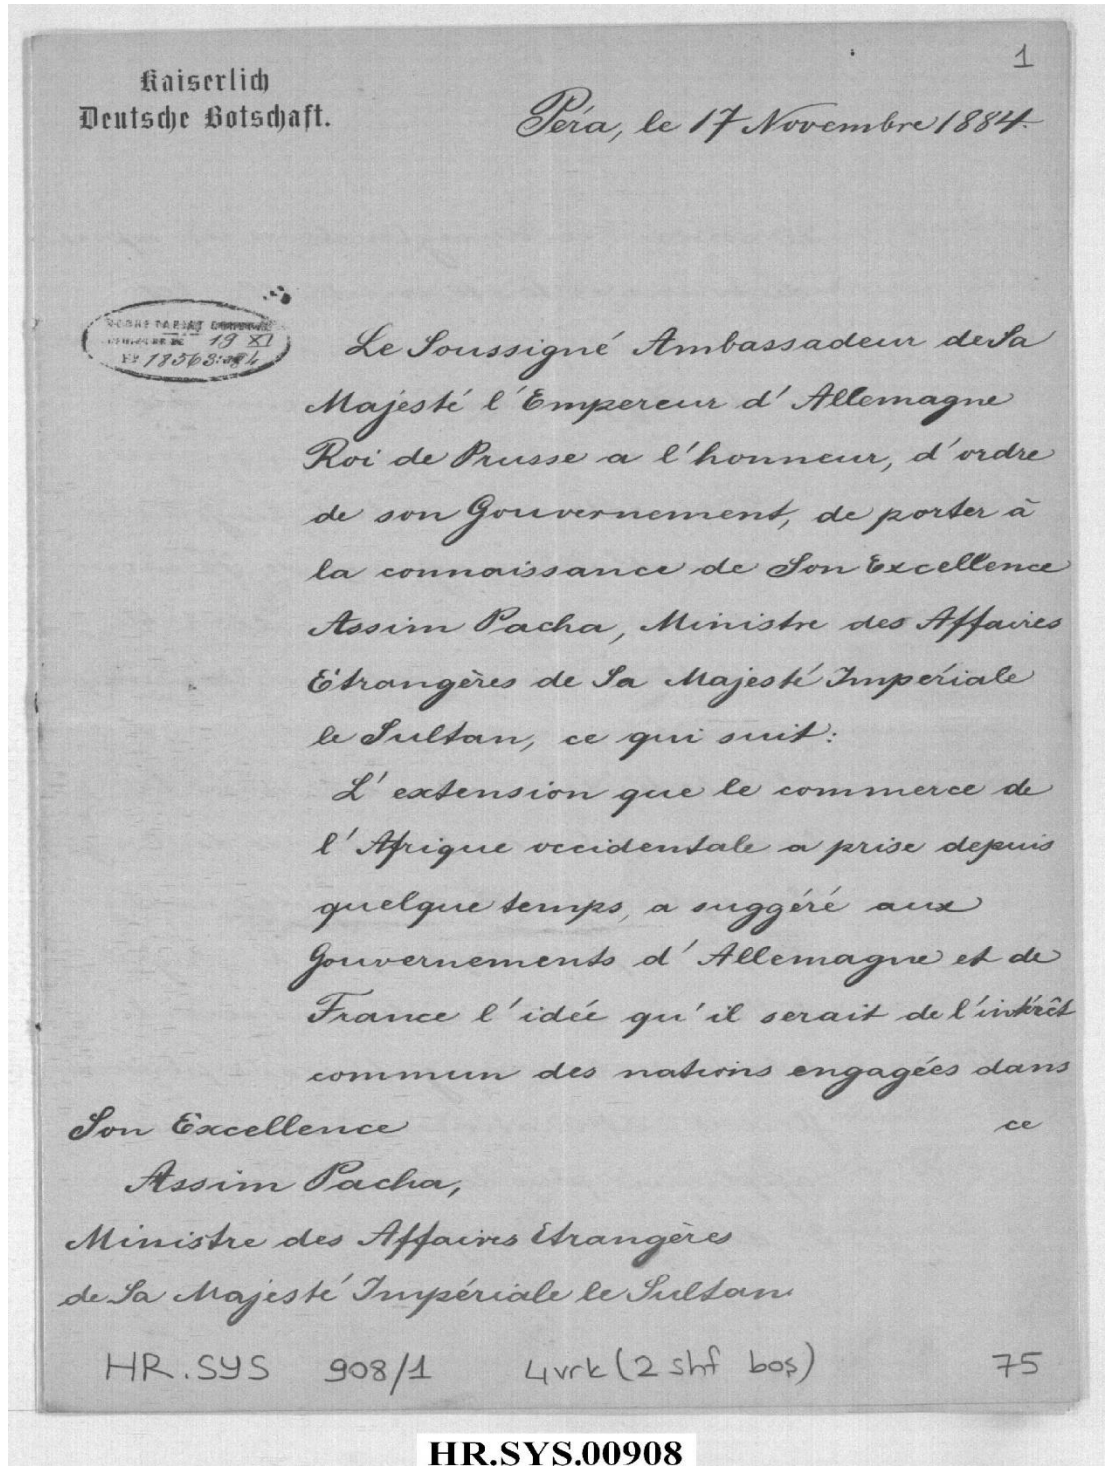 1
Kaiserlich
Deutsche Botschaft.
Péra, le 17 Novembre 1884.
19 XI
18563:84
Le Soussigné Ambassadeur de Sa
Majesté l'Empereur d'Allemagne
Roi de Prusse a l'honneur, d'ordre
de son Gouvernement, de porter à
la connaissance de Son Excellence
Assim Pacha, Ministre des Affaires
Etrangères de Sa Majesté Impériale
le Sultan, ce qui suit:
L'extension que le commerce de
l'Afrique occidentale a prise depuis
quelque temps, a suggéré aux
Gouvernements d'Allemagne et de
France l'idée qu'il serait de l'intérêt
commun des nations engagées dans
ce
Son Excellence
Assim Pacha,
Ministre des Affaires Etrangères
de Sa Majesté Impériale le Sultan
HR.SYS 908/1 4vrk (2 shf boş) 75
HR.SYS.00908